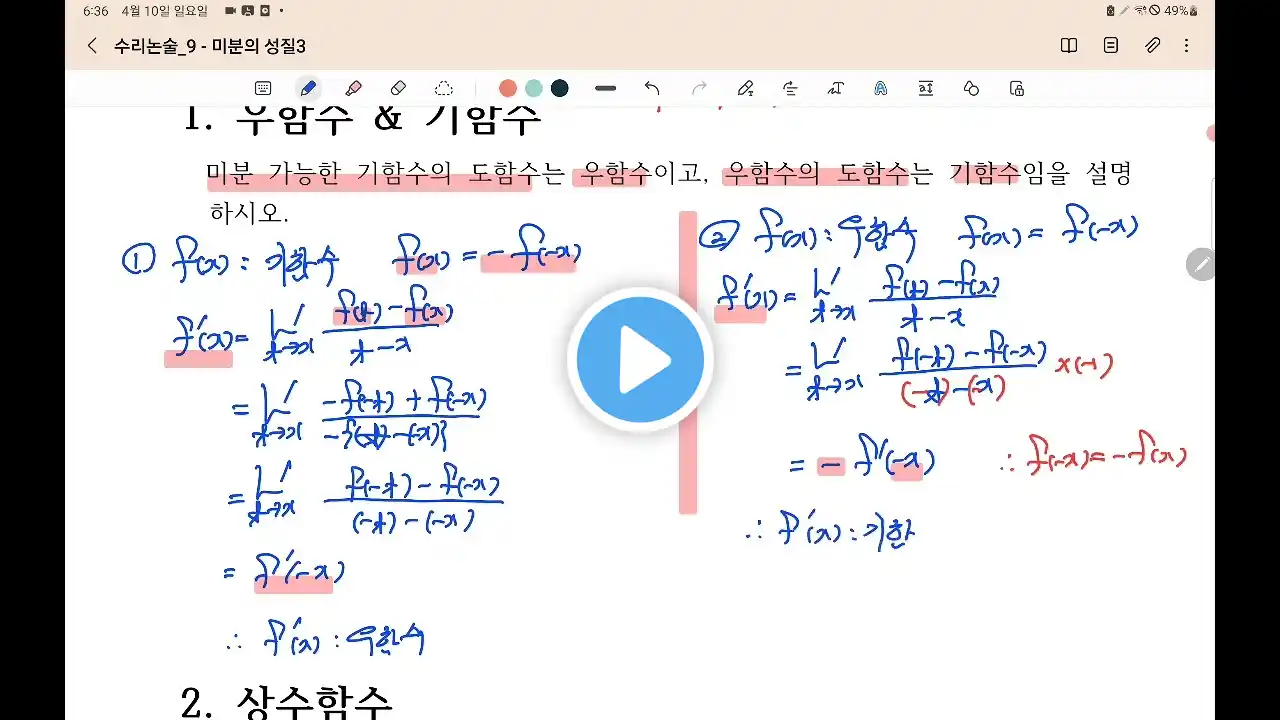 6:36 4월 10일 일요일 49%
수리논술_9 - 미분의 성질3
1. 우함수 & 기함수
미분 가능한 기함수의 도함수는 우함수이고, 우함수의 도함수는 기함수임을 설명
하시오.
① f(x) : 기함수 f(x) = -f(-x)
f'(x) = lim t→x (f(t) - f(x)) / (t - x)
= lim t→x (-f(-t) + f(-x)) / (-{(-t) - (-x)})
= lim t→x (f(-t) - f(-x)) / ((-t) - (-x))
= f'(-x)
∴ f'(x) : 우함수
② f(x) : 우함수 f(x) = f(-x)
f'(x) = lim t→x (f(t) - f(x)) / (t - x)
= lim t→x (f(-t) - f(-x)) / ((-t) - (-x)) ×(-1)
= - f'(-x) ∴ f(-x) = -f(x)
∴ f'(x) : 기함
2. 상수함수